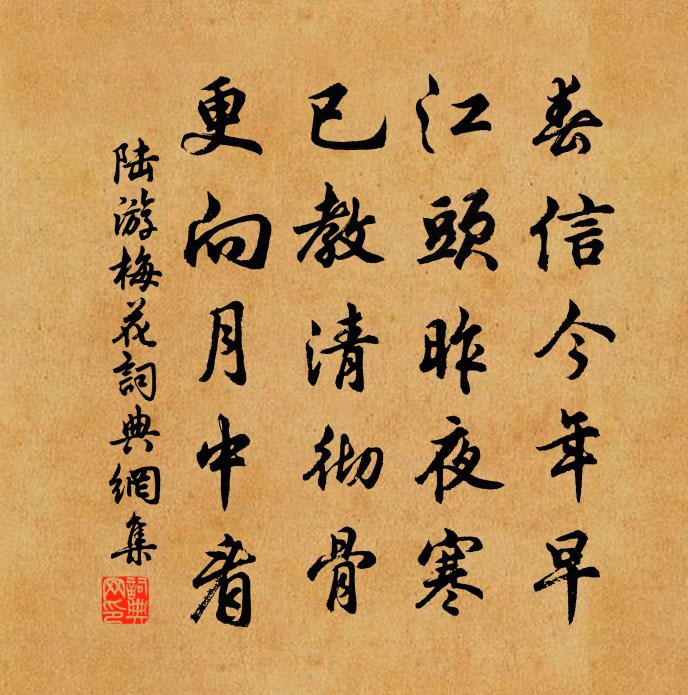 春信今年早
江頭昨夜寒
已教清徹骨
更向月中看
陸游梅花詞典網集
詞典網印